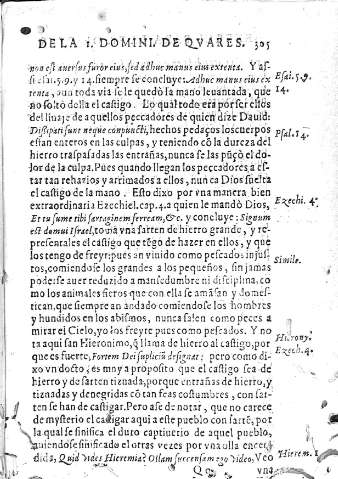 DE LA 1. DOMINI. DE QVARES. 305
non est auersus furor eius, sed adhuc manus eius extenta. Y as-
si Esai. 5.9. y 14. siempre se concluye: Adhuc manus eius ex-
Esai. 5.9.
tenta, aun toda via se le quedò la mano leuantada, que
14.
no soltò della el castigo. Lo qual todo era por ser ellos
del linaje de aquellos peccadores de quien dize Dauid:
Dissipati sunt neque compuncti, hechos pedaços los cuerpos
Psal. 34.
estan enteros en las culpas, y teniendo cõ la dureza del
hierro traspassadas las entrañas, nunca se las pũçò el do-
lor de la culpa. Pues quando llegan los peccadores a es-
tar tan rehazios y arrimados a ellos, nunca Dios suelta
el castigo de la mano. Esto dixo por vna manera bien
extraordinaria Ezechiel. cap. 4. a quien le mandò Dios,
Ezechi. 4.
Et tu sume tibi sartaginem ferream, &c. y concluye: Signum
est domui Israel, toma vna sarten de hierro grande, y re-
presentales el castigo que tẽgo de hazer en ellos, y que
los tengo de freyr: pues an viuido como pescados injus-
Simile.
tos, comiendose los grandes a los pequeños, sin jamas
poderse auer reduzido a mansedumbre ni disciplina, co
mo los animales fieros que con ella se amãsan y domes-
tican, que siempre an andado comiendose los hombres
y hundidos en los abismos, nunca salen como peces a
mirar el Cielo, yo los freyre pues como pescados. Y no
ta aqui san Hieronimo, q̃ llama de hierro al castigo, por
Hierony.
que es fuerte, Fortem Dei supliciũ designat: pero como di-
Ezech. 4.
xo vn docto, es muy a proposito que el castigo sea de
hierro y de sarten tiznada, porque entrañas de hierro, y
tiznadas y denegridas cõ tan feas costumbres, con sar-
ten se han de castigar. Pero ase de notar, que no carece
de mysterio el castigar aqui a este pueblo con sartẽ, por
la qual se sinifica el duro captiuerio de aquel pueblo,
auiendose sinificado el otras vezes por vna olla encen-
dida, Quid vides Hieremia? Ollam succensam ego video. Veo
Hierem. 1
Qq
vna